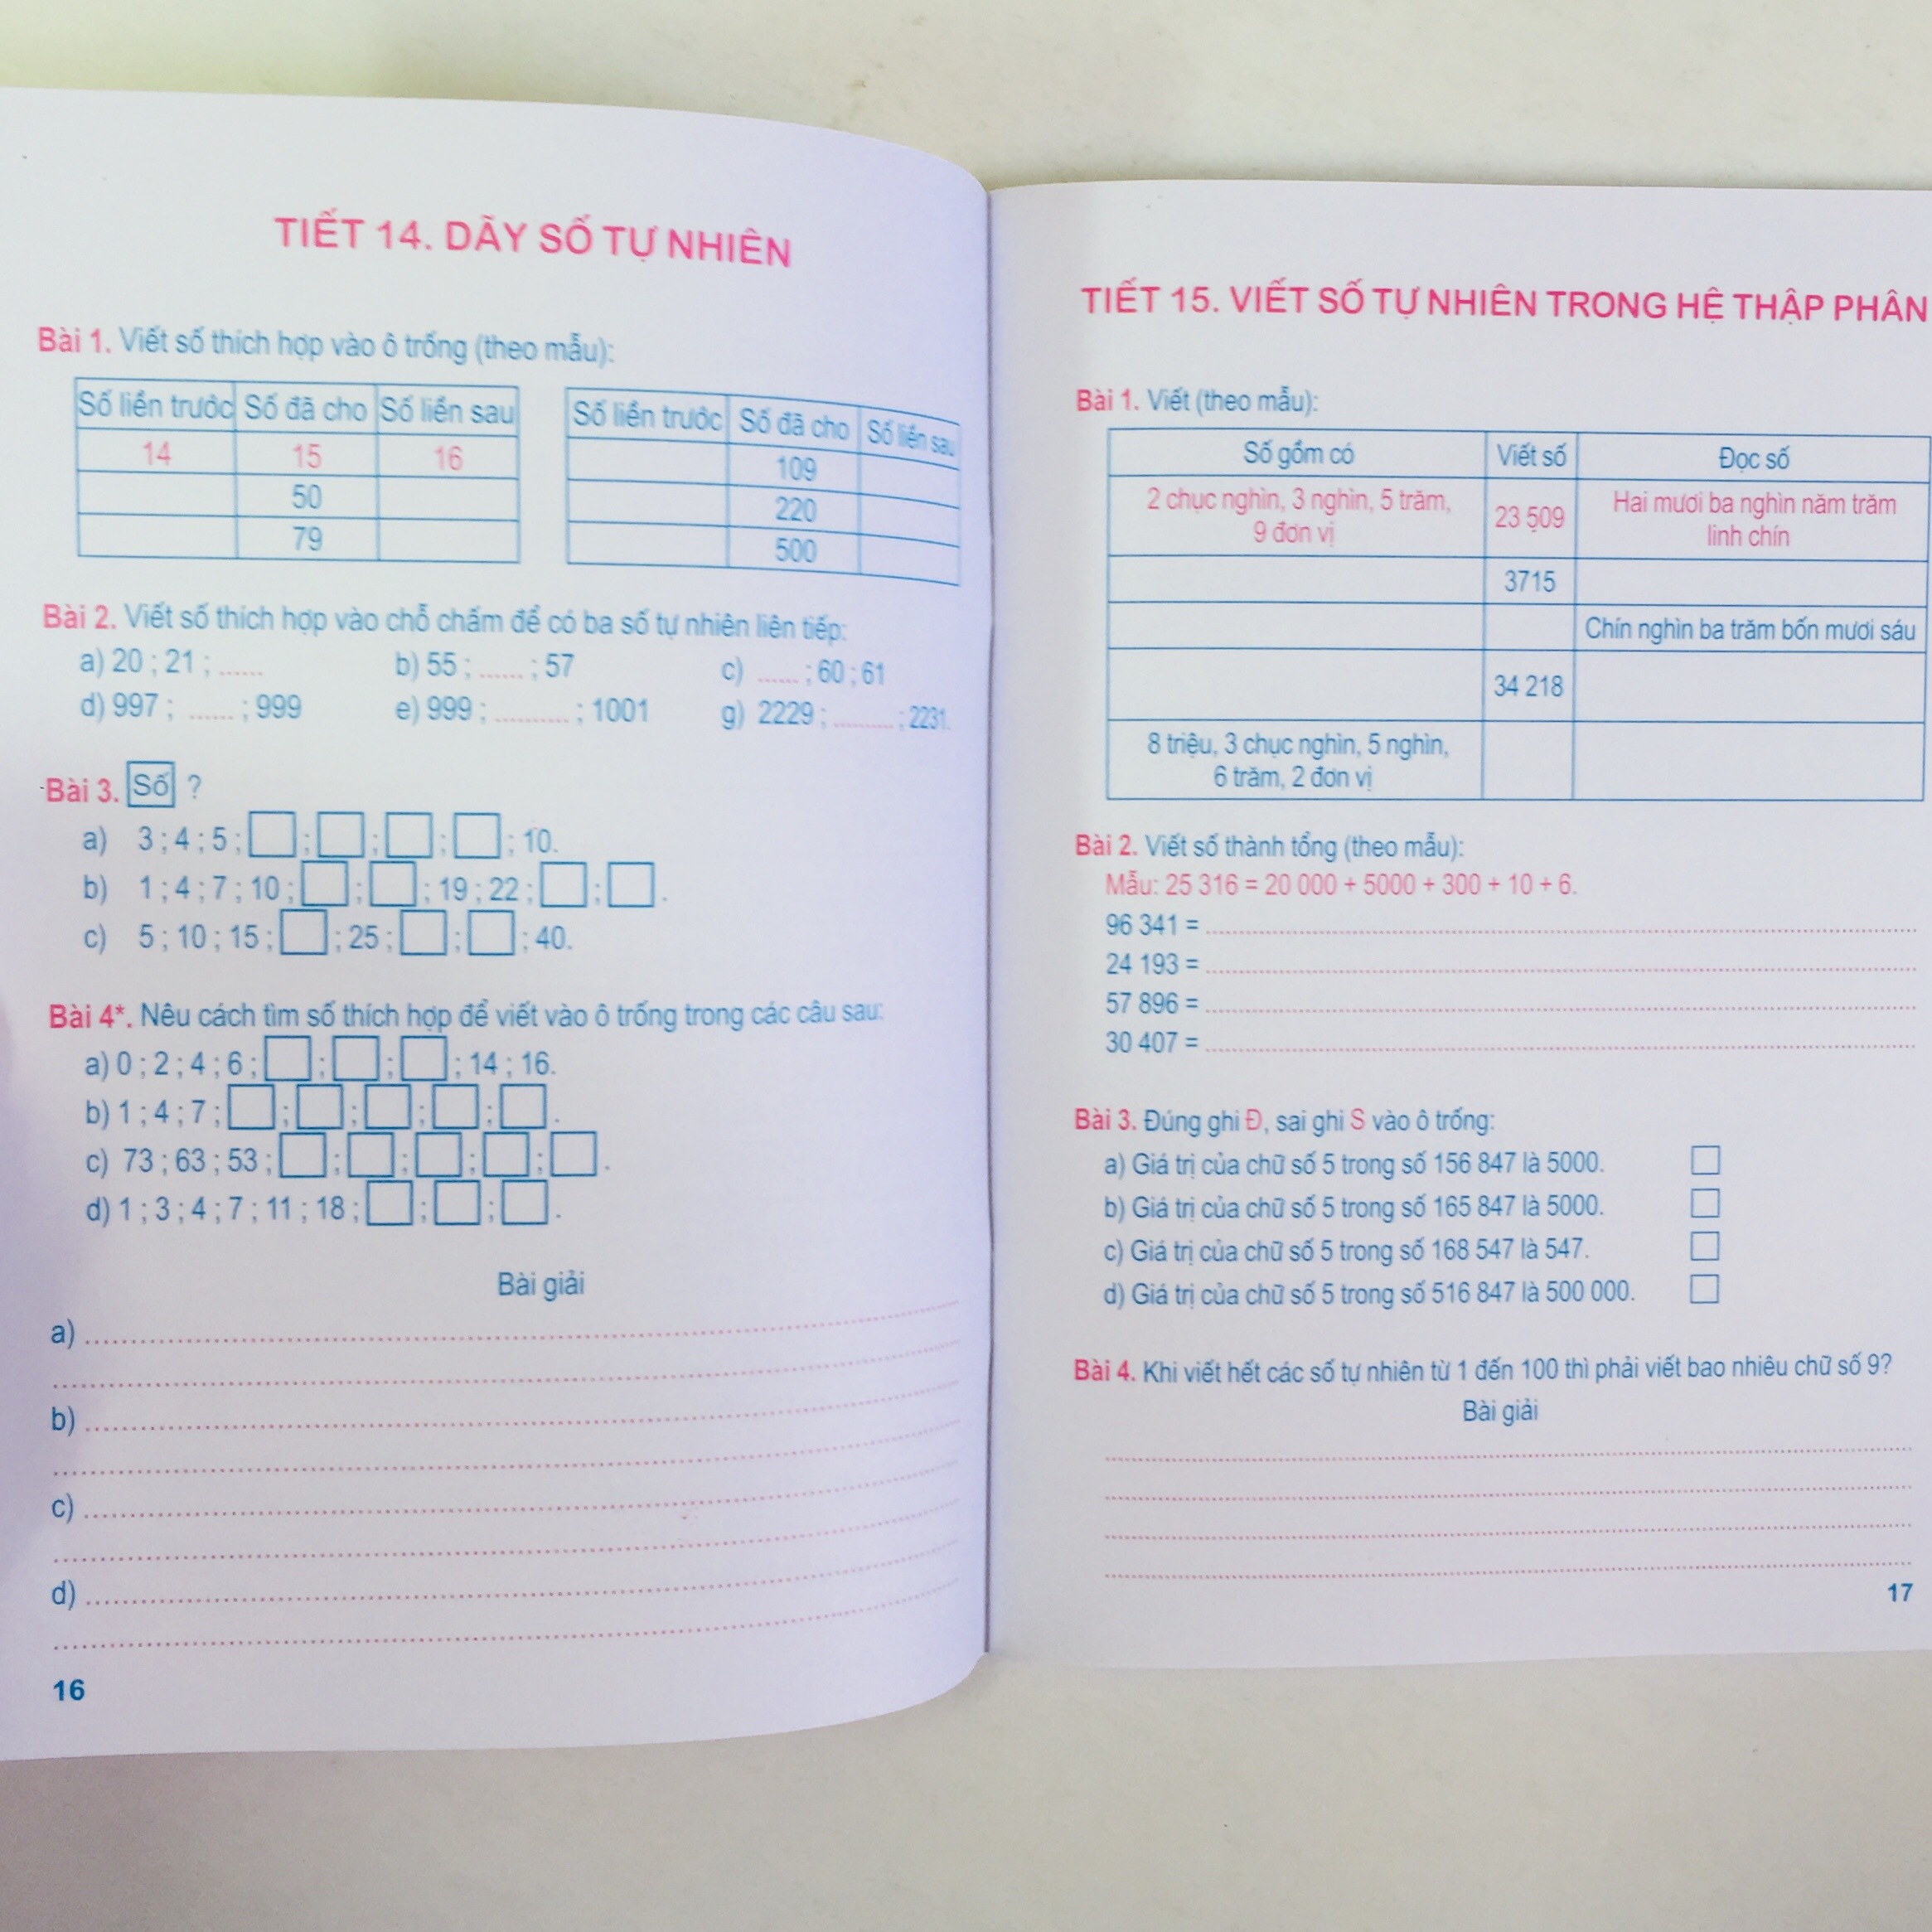 TIẾT 14. DÃY SỐ TỰ NHIÊN
Bài 1. Viết số thích hợp vào ô trống (theo mẫu):
Số liền trước Số đã cho Số liền sau
14 15 16
50
79
Số liền trước Số đã cho Số liền sau
109
220
500
Bài 2. Viết số thích hợp vào chỗ chấm để có ba số tự nhiên liên tiếp:
a) 20 ; 21 ; ...... b) 55 ; ...... ; 57 c) ...... ; 60 ; 61
d) 997 ; ...... ; 999 e) 999 ; .......... ; 1001 g) 2229 ; ......... ; 2231.
Bài 3. Số ?
a) 3 ; 4 ; 5 ; □ ; □ ; □ ; □ ; 10.
b) 1 ; 4 ; 7 ; 10 ; □ ; □ ; 19 ; 22 ; □ ; □ .
c) 5 ; 10 ; 15 ; □ ; 25 ; □ ; □ ; 40.
Bài 4*. Nêu cách tìm số thích hợp để viết vào ô trống trong các câu sau:
a) 0 ; 2 ; 4 ; 6 ; □ ; □ ; □ ; 14 ; 16.
b) 1 ; 4 ; 7 ; □ ; □ ; □ ; □ ; □ .
c) 73 ; 63 ; 53 ; □ ; □ ; □ ; □ ; □ .
d) 1 ; 3 ; 4 ; 7 ; 11 ; 18 ; □ ; □ ; □ .
Bài giải
a)
b)
c)
d)
16
TIẾT 15. VIẾT SỐ TỰ NHIÊN TRONG HỆ THẬP PHÂN
Bài 1. Viết (theo mẫu):
Số gồm có Viết số Đọc số
2 chục nghìn, 3 nghìn, 5 trăm, 9 đơn vị 23 509 Hai mươi ba nghìn năm trăm linh chín
3715
Chín nghìn ba trăm bốn mươi sáu
34 218
8 triệu, 3 chục nghìn, 5 nghìn,
6 trăm, 2 đơn vị
Bài 2. Viết số thành tổng (theo mẫu):
Mẫu: 25 316 = 20 000 + 5000 + 300 + 10 + 6.
96 341 =
24 193 =
57 896 =
30 407 =
Bài 3. Đúng ghi Đ, sai ghi S vào ô trống:
a) Giá trị của chữ số 5 trong số 156 847 là 5000. □
b) Giá trị của chữ số 5 trong số 165 847 là 5000. □
c) Giá trị của chữ số 5 trong số 168 547 là 547. □
d) Giá trị của chữ số 5 trong số 516 847 là 500 000. □
Bài 4. Khi viết hết các số tự nhiên từ 1 đến 100 thì phải viết bao nhiêu chữ số 9?
Bài giải
17